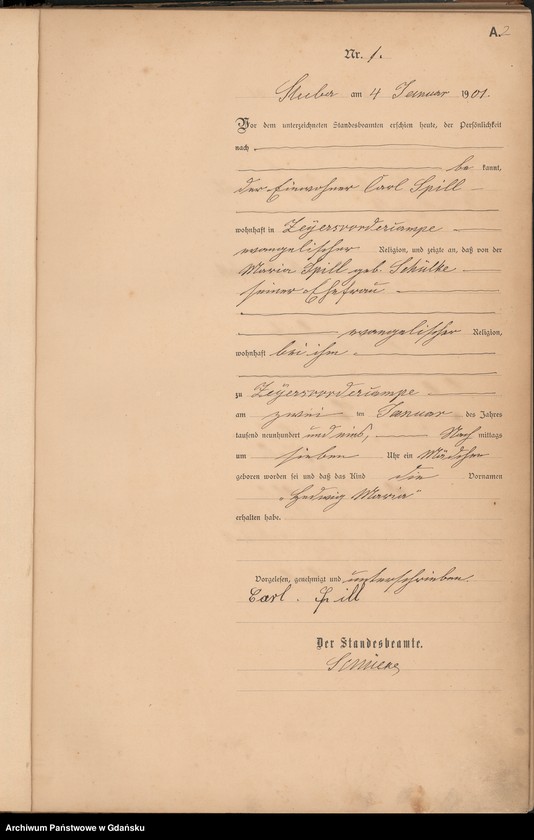 A. 2
Nr. 1.
Stuba am 4 Januar 1901.
Vor dem unterzeichneten Standesbeamten erschien heute, der Persönlichkeit
nach
be kannt,
der Einwohner Carl Spill
wohnhaft in Zeÿersvordercampe
evangelischer Religion, und zeigte an, daß von der
Maria Spill geb. Schülke
seiner Ehefrau
evangelischer Religion,
wohnhaft bei ihm
zu Zeÿersvordercampe
am zwei ten Januar des Jahres
tausend neunhundert und eins, Nach mittags
um sieben Uhr ein Mädchen
geboren worden sei und daß das Kind die Vornamen
„Hedwig Maria"
erhalten habe.
Vorgelesen, genehmigt und unterschrieben.
Carl Spill
Der Standesbeamte.
Archiwum Państwowe w Gdańsku